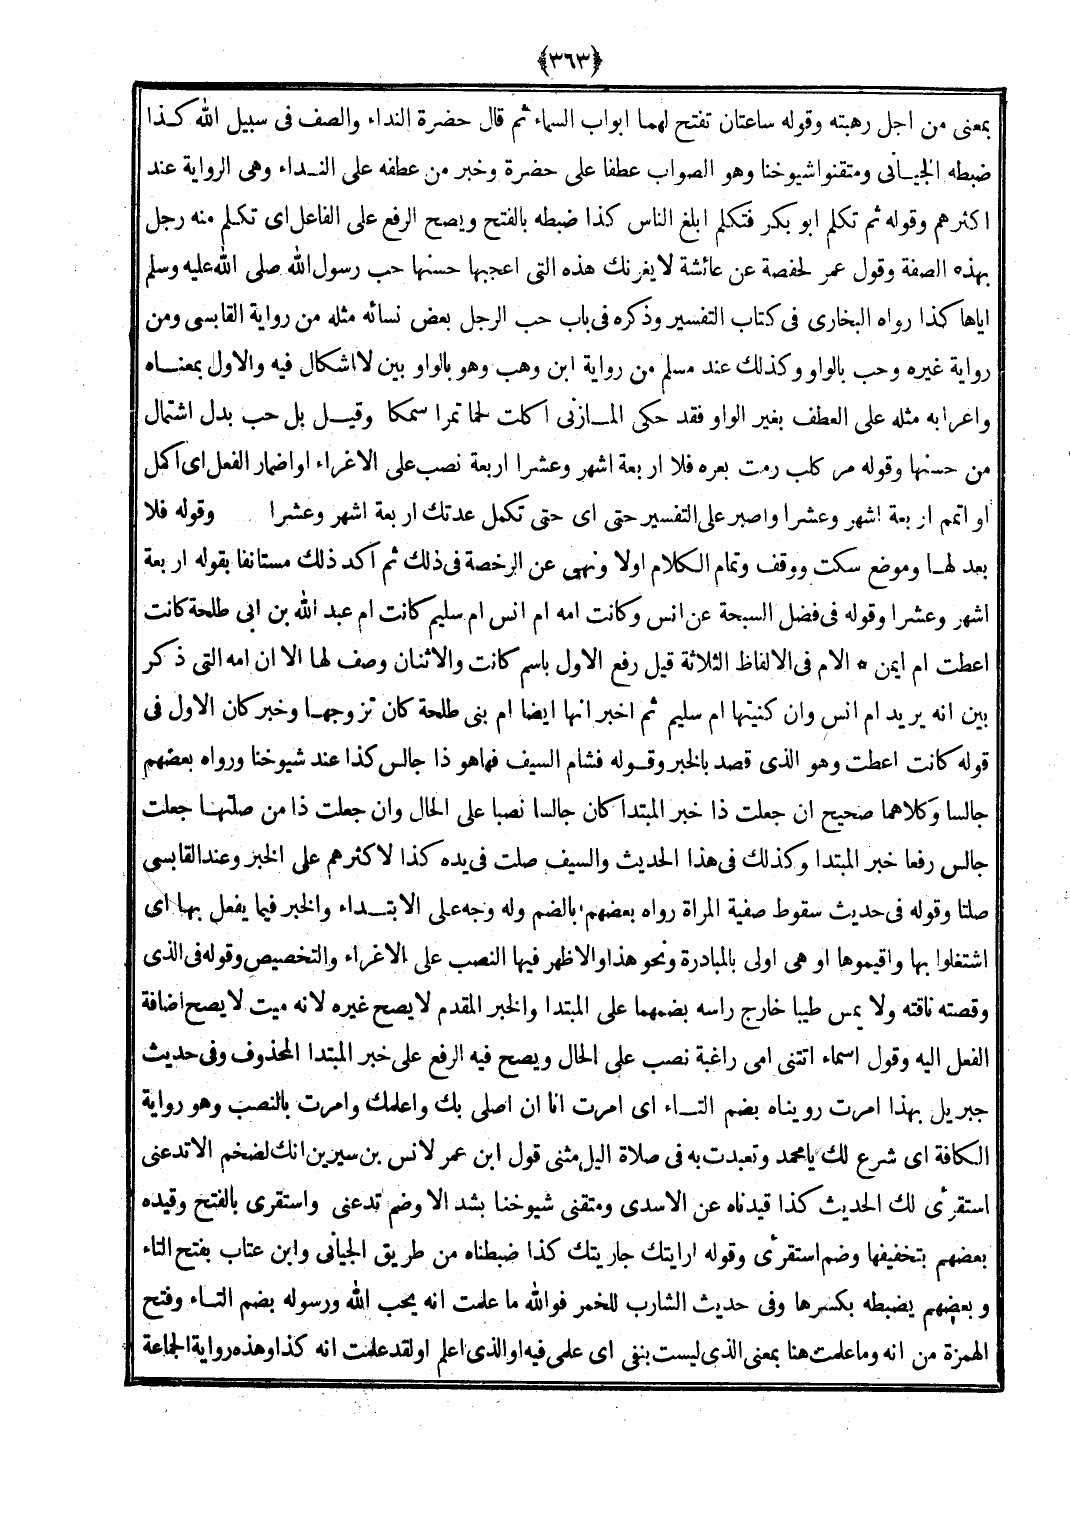 ﴿٣٦٣﴾
بمعنى من اجل رهبته وقوله ساعتان تفتح لهما ابواب السماء ثم قال حضرة النداء والصف فى سبيل الله كذا
ضبطه الجيانى ومتقنواشيوخنا وهو الصواب عطفا على حضرة وخبر من عطفه على النداء وهى الرواية عند
اكثرهم وقوله ثم تكلم ابو بكر فتكلم ابلغ الناس كذا ضبطه بالفتح ويصح الرفع على الفاعل اى تكلم منه رجل
بهذه الصفة وقول عمر لحفصة عن عائشة لايغرنك هذه التى اعجبها حسنها حب رسول الله صلى الله عليه وسلم
اياها كذا رواه البخارى فى كتاب التفسير وذكره فى باب حب الرجل بعض نسائه مثله من رواية القابسى ومن
رواية غيره وحب بالواو وكذلك عند مسلم من رواية ابن وهب وهو بالواو بين لااشكال فيه والاول بمعناه
واعرابه مثله على العطف بغير الواو فقد حكى المازنى اكلت لحما تمرا سمكا وقيل بل حب بدل اشتمال
من حسنها وقوله مر كلب رمت بعره فلا اربعة اشهر وعشرا اربعة نصب على الاغراء اواضمار الفعل اى اكمل
او اتمم اربعة اشهر وعشرا واصبر على التفسير حتى اى حتى تكمل عدتك اربعة اشهر وعشرا وقوله فلا
بعد لها وموضع سكت ووقف وتمام الكلام اولا ونهى عن الرخصة فى ذلك ثم اكد ذلك مستانفا بقوله اربعة
اشهر وعشرا وقوله فى فضل السبحة عن انس وكانت امه ام انس ام سليم كانت ام عبد الله بن ابى طلحة كانت
اعطت ام ايمن * الام فى الالفاظ الثلاثة قيل رفع الاول باسم كانت والاثنان وصف لها الا ان امه التى ذكر
بين انه يريد ام انس وان كنيتها ام سليم ثم اخبر انها ايضا ام بنى طلحة كان تزوجها وخبركان الاول فى
قوله كانت اعطت وهو الذى قصد بالخبر وقوله فشام السيف فهاهو ذا جالس كذا عند شيوخنا ورواه بعضهم
جالسا وكلاهما صحيح ان جعلت ذا خبر المبتدا كان جالسا نصبا على الحال وان جعلت ذا من صلتها جعلت
جالس رفعا خبر المبتدا وكذلك فى هذا الحديث والسيف صلت فى يده كذا لاكثرهم على الخبر وعند القابسى
صلتا وقوله فى حديث سقوط صفية المراة رواه بعضهم بالضم وله وجه على الابتداء والخبر فيما يفعل بها اى
اشتغلوا بها واقيموها او هى اولى بالمبادرة ونحو هذا والاظهر فيها النصب على الاغراء والتخصيص وقوله فى الذى
وقصته ناقته ولا يمس طيبا خارج راسه بضمهما على المبتدا والخبر المقدم لايصح غيره لانه ميت لايصح اضافة
الفعل اليه وقول اسماء اتتنى امى راغبة نصب على الحال ويصح فيه الرفع على خبر المبتدا المحذوف وفى حديث
جبريل بهذا امرت رويناه بضم التاء اى امرت انا ان اصلى بك واعلمك وامرت بالنصب وهو رواية
الكافة اى شرع لك يامحمد وتعبدت به فى صلاة اليل مثنى قول ابن عمر لانس بن سيرين انك لضخم الاتدعنى
استقرأى لك الحديث كذا قيدناه عن الاسدى ومتقنى شيوخنا بشد الا وضم تدعنى واستقرى بالفتح وقيده
بعضهم بتخفيفها وضم استقرأى وقوله ارايتك جاريتك كذا ضبطناه من طريق الجيانى وابن عتاب بفتح التاء
وبعضهم يضبطه بكسرها وفى حديث الشارب للخمر فوالله ما علمت انه يحب الله ورسوله بضم التاء وفتح
الهمزة من انه وماعلمت هنا بمعنى الذى ليست بنفى اى علمى فيه اوالذى اعلم اولقد علمت انه كذا وهذه رواية الجماعة